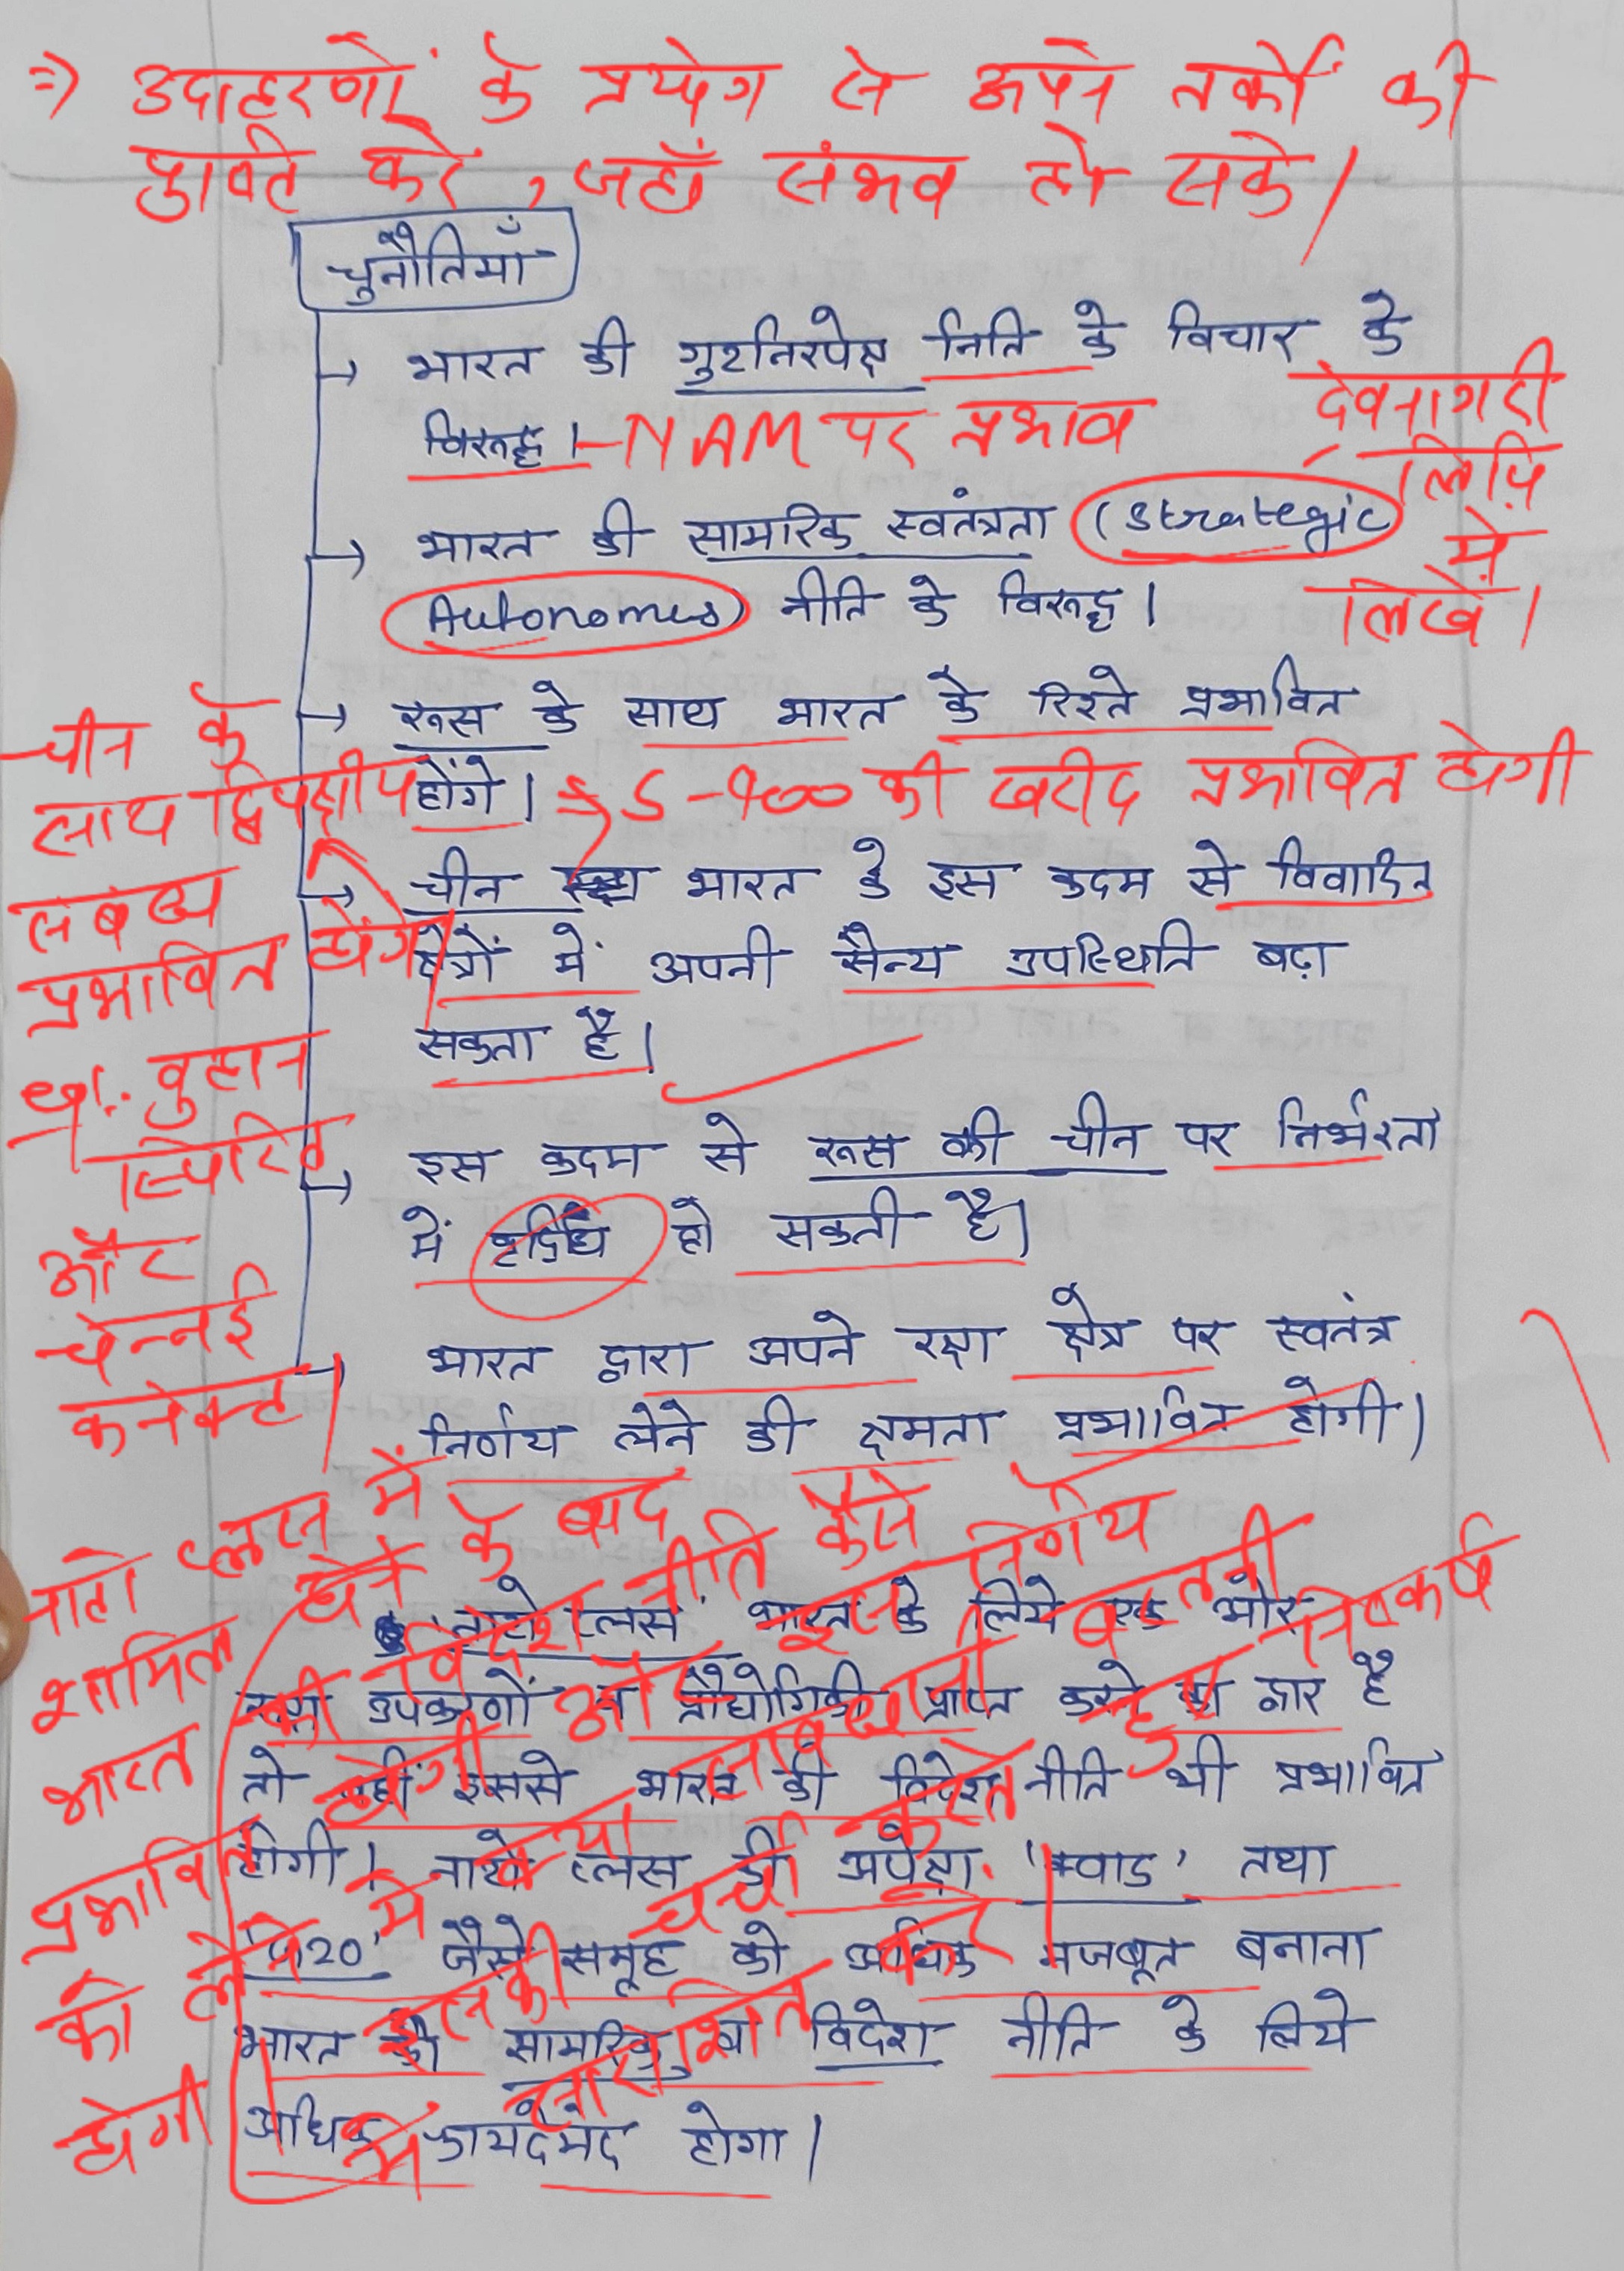 ⇒ उदाहरणों के प्रयोग से अपने तर्कों की
पुष्टि करें, जहाँ संभव हो सके।
चुनौतियाँ
→ भारत की गुटनिरपेक्ष निति के विचार के
विरूद्ध। - NAM पर प्रभाव
→ भारत की सामरिक स्वतंत्रता (Strategic
Autonomus) नीति के विरूद्ध।
देवनागरी
लिपि
में
लिखें।
→ रूस के साथ भारत के रिश्ते प्रभावित
होंगे। → S-400 की खरीद प्रभावित होगी
→ चीन भारत के इस कदम से विवादित
क्षेत्रों में अपनी सैन्य उपस्थिति बढ़ा
सकता है।
चीन के
साथ द्विपक्षीय
संबंध
प्रभावित होंगे
वुहान
स्पिरिट
और
चेन्नई
कनेक्ट।
→ इस कदम से रूस की चीन पर निर्भरता
में वृद्धि हो सकती है।
→ भारत द्वारा अपने रक्षा क्षेत्र पर स्वतंत्र
निर्णय लेने की क्षमता प्रभावित होगी।
'नाटो प्लस' भारत के लिये एक ओर
रक्षा उपकरणों व प्रौद्योगिकी प्राप्त करने का द्वार है
तो वहीं इससे भारत की विदेश नीति भी प्रभावित
होगी। नाटो प्लस की अपेक्षा 'क्वाड' तथा
'जी20' जैसे समूह को अधिक मजबूत बनाना
भारत की सामरिक व विदेश नीति के लिये
अधिक फायदेमंद होगा।
नाटो प्लस में
शामिल होने के बाद
भारत की विदेश नीति कैसे
प्रभावित होगी और इस निर्णय
को लेने में क्या सावधानी बरतनी
होगी इसकी चर्चा करते हुए निष्कर्ष
में करें।